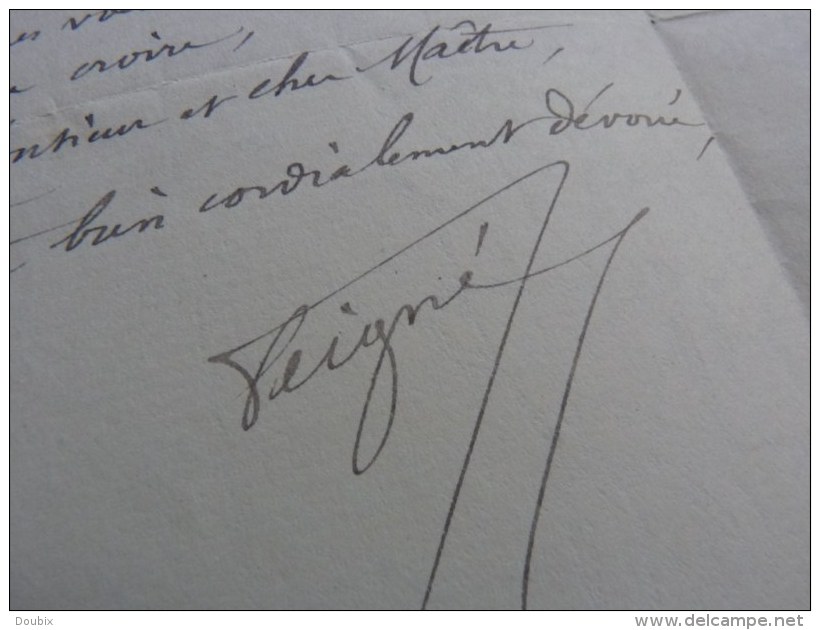 croire,
et cher Maître,
bien cordialement dévoué,
Veigné
Doubix
www.delcampe.net